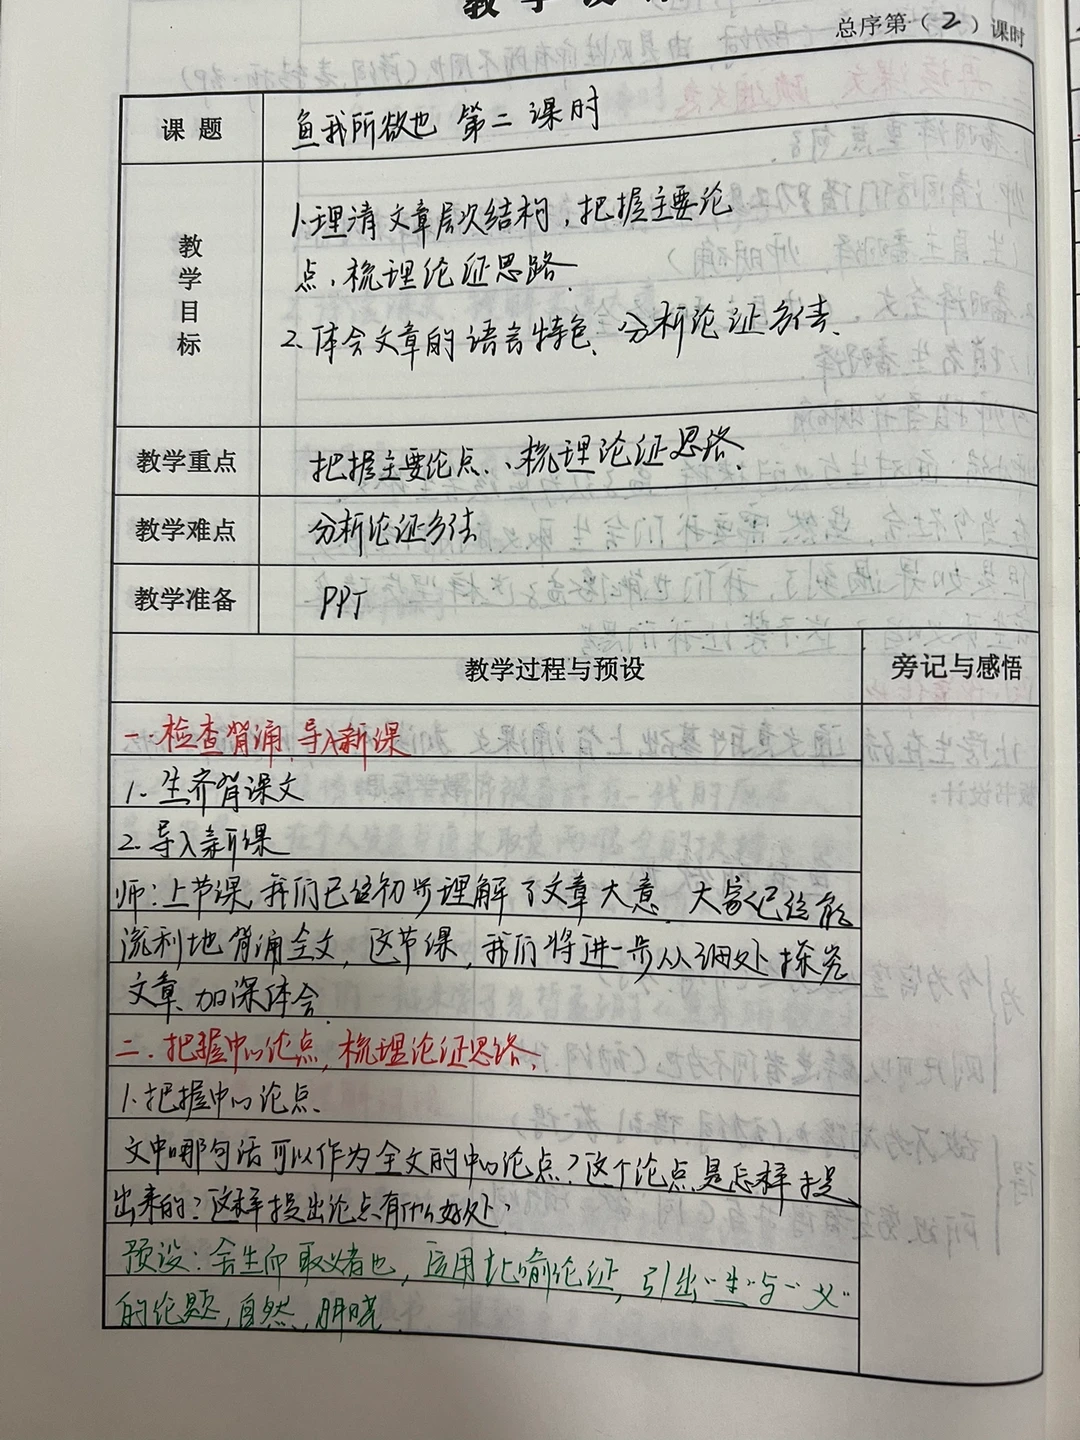 教学设
总序第（2）课时
课题 鱼我所欲也 第二课时
教学目标
1.理清文章层次结构，把握主要论
点，梳理论证思路.
2.体会文章的语言特色、分析论证方法.
教学重点 把握主要论点、梳理论证思路.
教学难点 分析论证方法
教学准备 PPT
教学过程与预设 旁记与感悟
一.检查背诵,导入新课
1.生齐背课文
2.导入新课
师：上节课,我们已经初步理解了文章大意.大家已经能
流利地背诵全文,这节课,我们将进一步从细处探究
文章.加深体会.
二.把握中心论点,梳理论证思路.
1.把握中心论点.
文中哪句话可以作为全文的中心论点?这个论点是怎样提
出来的?这样提出论点有什么好处?
预设：舍生而取义者也,运用比喻论证,引出"生"与"义"
的论题,自然、明晓.